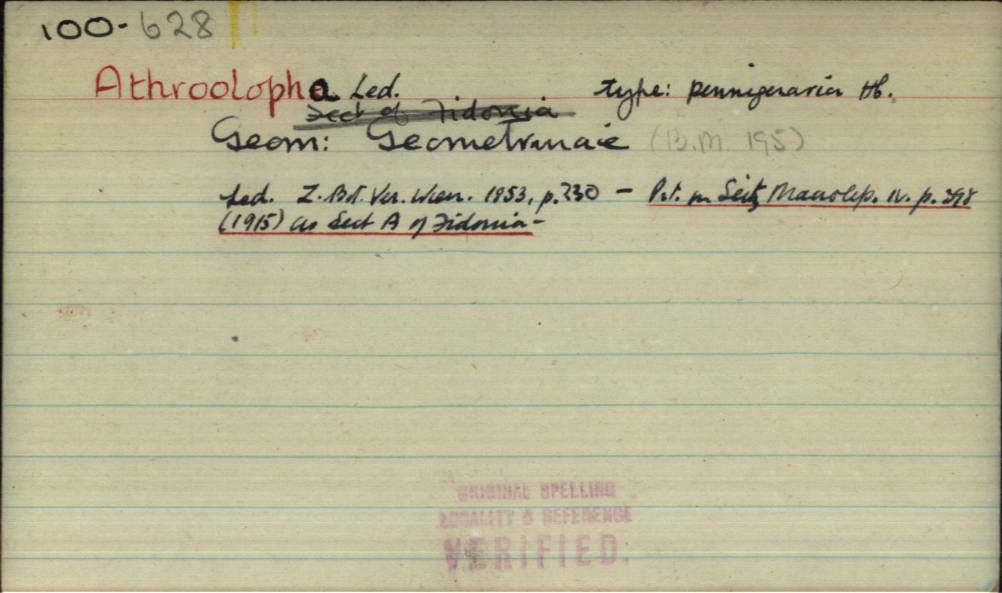 100-628
Athroolopha Led. type: pennigeraria Hb.
Sect of Fidonia
Geom: Geometrinae (B.M. 195)
Led. Z. Bot. Ver. Wien. 1853, p. 230 - Prt. in Seitz Macrolep. IV. p. 398
(1915) as Sect A of Fidonia -
ORIGINAL SPELLING
LOCALITY & REFERENCE
VERIFIED.